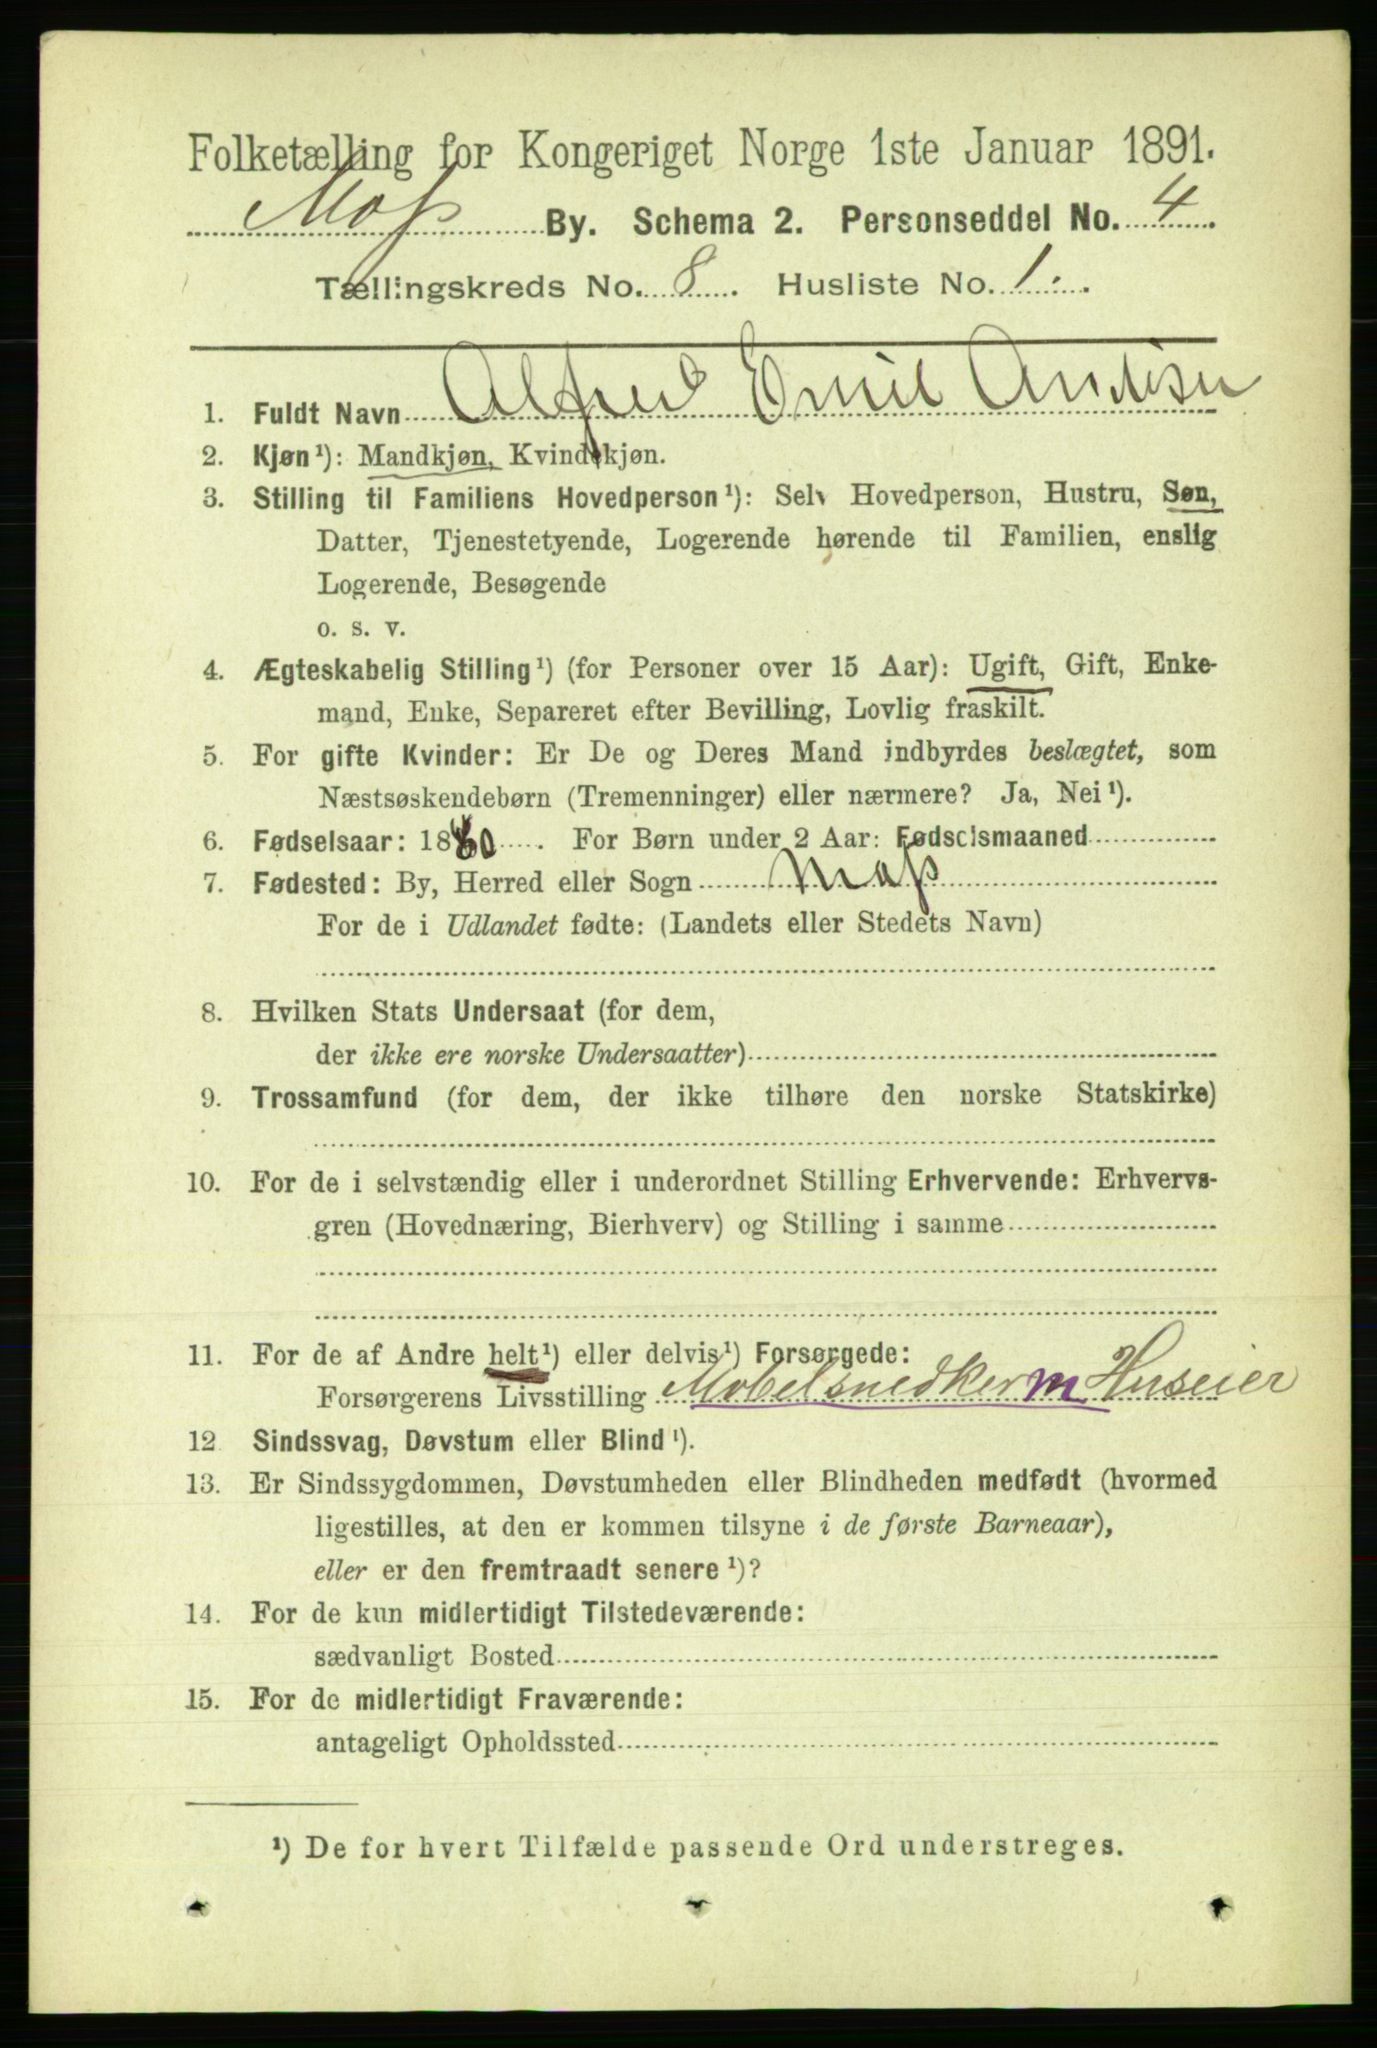 Folketælling for Kongeriget Norge 1ste Januar 1891.
Moss By. Schema 2. Personseddel No. 4.
Tællingskreds No. 8. Husliste No. 1.
1. Fuldt Navn Alfred Emil Andersen
2. Kjøn¹): Mandkjøn, Kvindekjøn.
3. Stilling til Familiens Hovedperson¹): Selv Hovedperson, Hustru, Søn,
Datter, Tjenestetyende, Logerende hørende til Familien, enslig
Logerende, Besøgende
o. s. v.
4. Ægteskabelig Stilling¹) (for Personer over 15 Aar): Ugift, Gift, Enke-
mand, Enke, Separeret efter Bevilling, Lovlig fraskilt.
5. For gifte Kvinder: Er De og Deres Mand indbyrdes beslægtet, som
Næstsøskendebørn (Tremenninger) eller nærmere? Ja, Nei¹).
6. Fødselsaar: 18 . For Børn under 2 Aar: Fødselsmaaned
7. Fødested: By, Herred eller Sogn Moss
For de i Udlandet fødte: (Landets eller Stedets Navn)
8. Hvilken Stats Undersaat (for dem,
der ikke ere norske Undersaatter)
9. Trossamfund (for dem, der ikke tilhøre den norske Statskirke)
10. For de i selvstændig eller i underordnet Stilling Erhvervende: Erhvervs-
gren (Hovednæring, Bierhverv) og Stilling i samme
11. For de af Andre helt¹) eller delvis¹) Forsørgede:
Forsørgerens Livsstilling Møbelsnedker m Huseier
12 Sindssvag, Døvstum eller Blind¹).
13. Er Sindssygdommen, Døvstumheden eller Blindheden medfødt (hvormed
ligestilles, at den er kommen tilsyne i de første Barneaar),
eller er den fremtraadt senere¹)?
14. For de kun midlertidigt Tilstedeværende:
sædvanligt Bosted
15. For de midlertidigt Fraværende:
antageligt Opholdssted
¹) De for hvert Tilfælde passende Ord understreges.